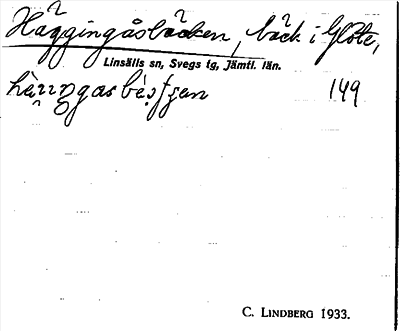 Häggingåsbäcken, bäck i Glöte,
Linsälls sn, Svegs tg, Jämtl. län.
149
C. LINDBERG 1933.